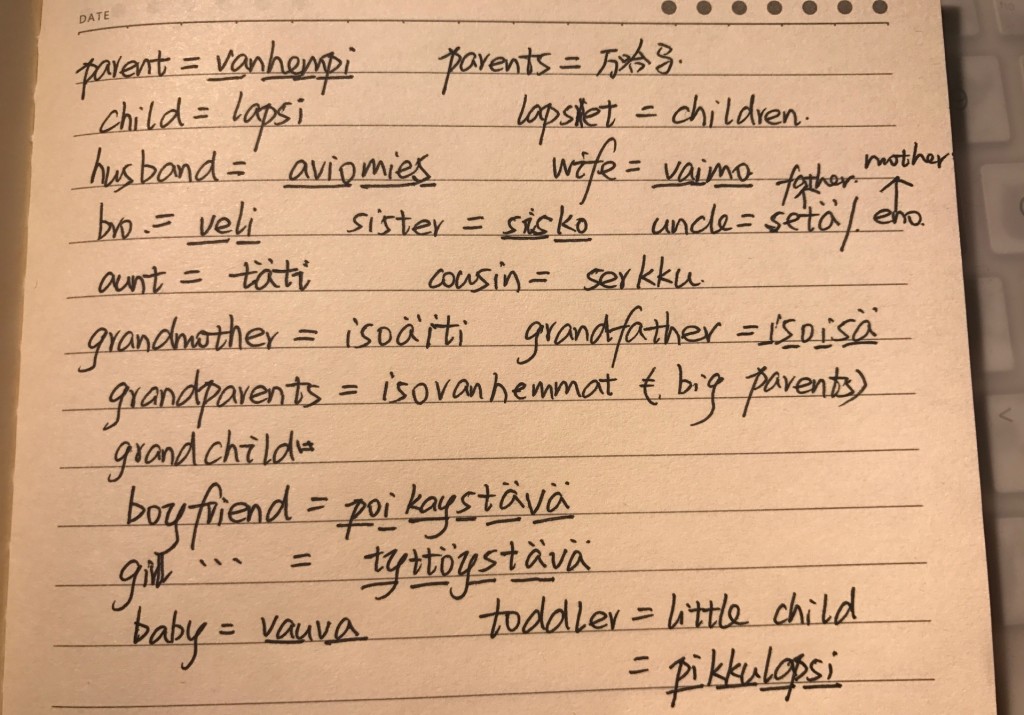 DATE
parent = vanhempi parents = 万哈马.
child = lapsi lapset = children.
mother
husband = aviomies wife = vaimo father.
bro. = veli sister = sisko uncle = setä / eno.
aunt = täti cousin = serkku.
grandmother = isoäiti grandfather = isoisä
grandparents = isovanhemmat ( big parents)
grandchild =
boyfriend = poikaystävä
girl ... = tyttöystävä
baby = vauva toddler = little child
= pikkulapsi